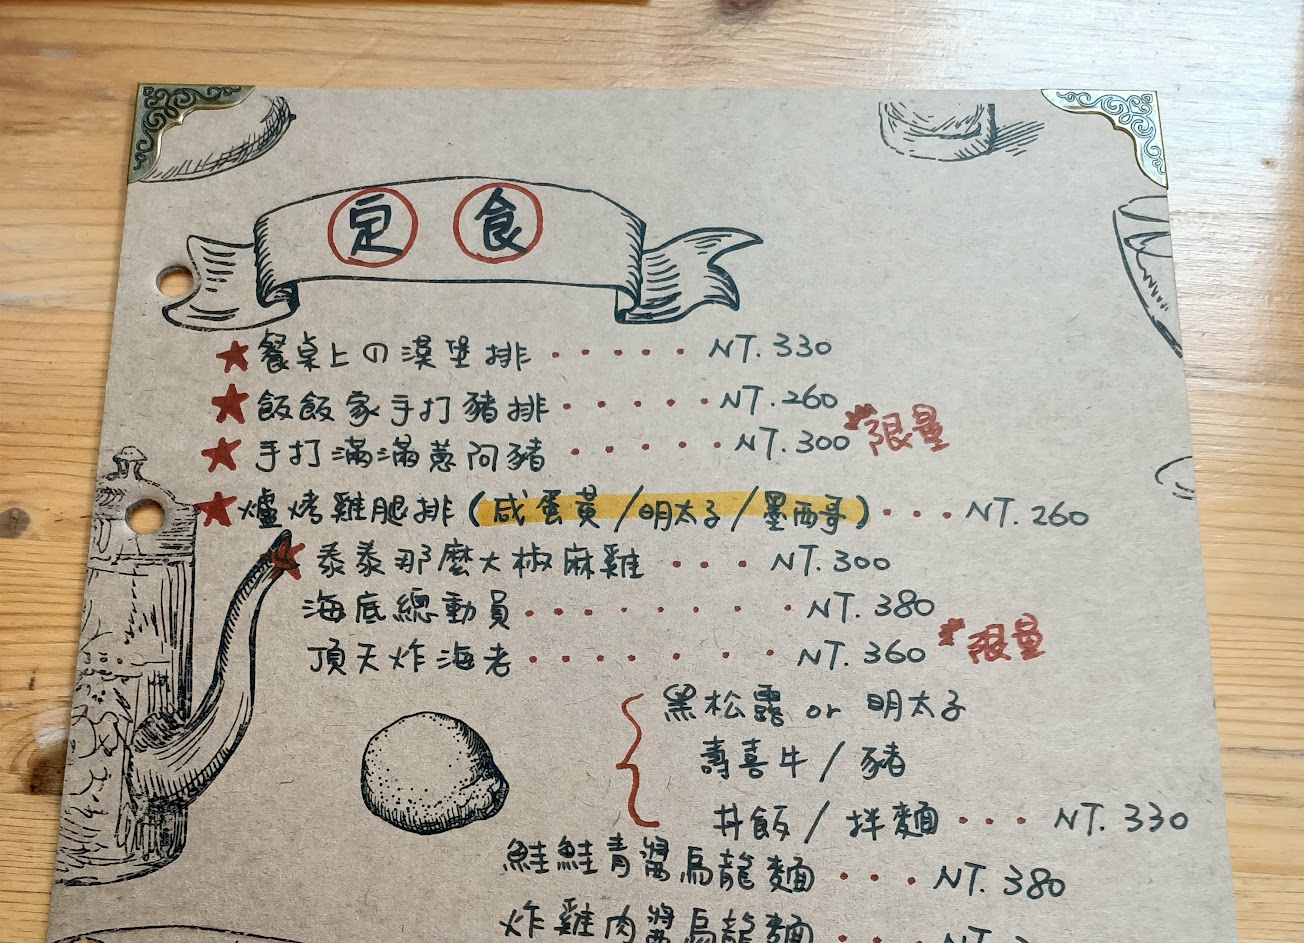 定食
★餐桌上の漢堡排 ····· NT.330
★飯飯家手打豬排 ····· NT.260
★手打滿滿蔥阿豬 ····· NT.300 *限量
★爐烤雞腿排(咸蛋黃/明太子/墨西哥)··· NT.260
★泰泰那麼大椒麻雞 ··· NT.300
海底總動員 ······· NT.380
頂天炸海老 ······ NT.360 *限量
黑松露 or 明太子
壽喜牛/豬
丼飯/拌麵 ··· NT.330
鮭鮭青醬烏龍麵 ··· NT.380
炸雞肉醬烏龍麵 ··· NT.